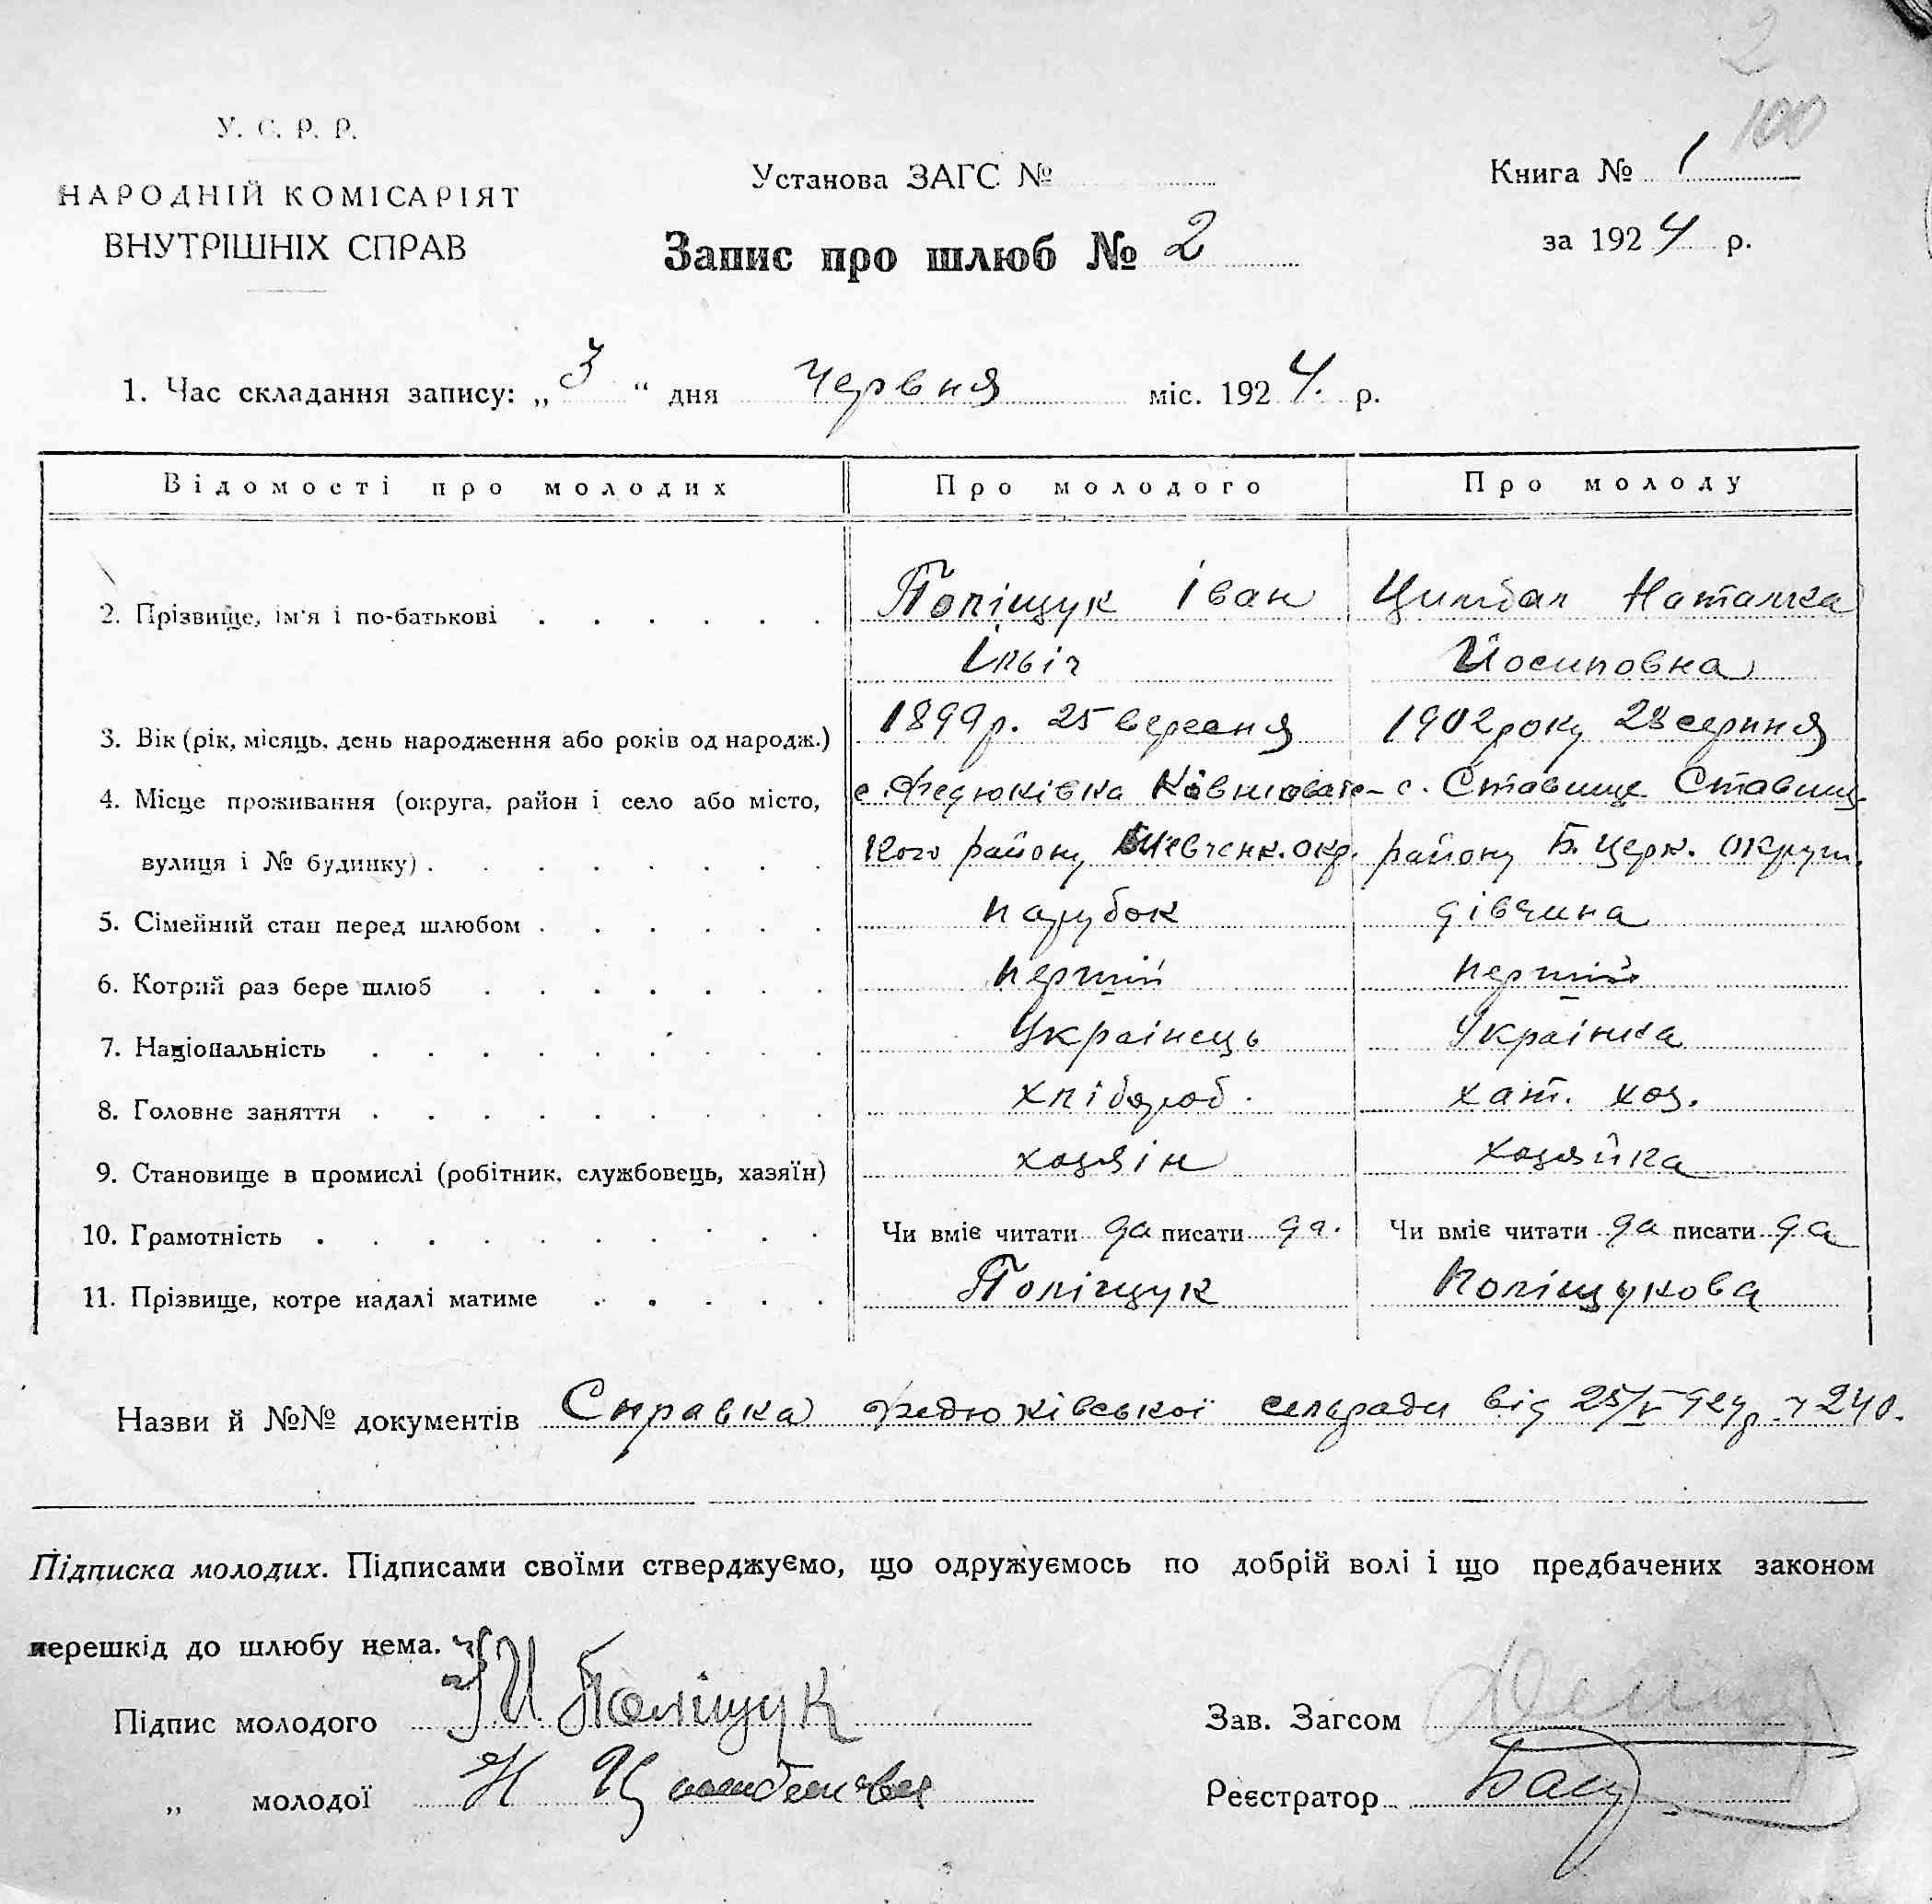 2
100
У. С. Р. Р.
НАРОДНІЙ КОМІСАРІЯТ
ВНУТРІШНІХ СПРАВ
Установа ЗАГС №
Запис про шлюб № 2
Книга № 1
за 1924 р.
1. Час складання запису: „3“ дня червня міс. 1924. р.
Відомості про молодих Про молодого Про молоду
2. Прізвище, ім'я і по-батькові Поліщук Іван Цимбал Наталка
Ільіч Йосиповна
3. Вік (рік, місяць, день народження або років од народж.) 1899 р. 25 вересня 1902 року 28 серпня
4. Місце проживання (округа, район і село або місто, с. Федюківка Ковшовате- с. Ставище Ставищ.
вулиця і № будинку) кого району Шевченк. окр. району Б. Церк. округи.
5. Сімейний стан перед шлюбом парубок дівчина
6. Котрий раз бере шлюб перший перший
7. Національність Українець Українка
8. Головне заняття хлібороб. хат. хоз.
9. Становище в промислі (робітник, службовець, хазяїн) хозяін хозяйка
10. Грамотність Чи вміє читати да писати да. Чи вміє читати да писати да
11. Прізвище, котре надалі матиме Поліщук Поліщукова
Назви й №№ документів Справка Федюківської сельради від 25/V 924 р. ч 240.
Підписка молодих. Підписами своїми стверджуємо, що одружуємось по добрій волі і що предбачених законом
перешкід до шлюбу нема.
Підпис молодого И Поліщук
„ молодої Н Цимбалова
Зав. Загсом
Реєстратор